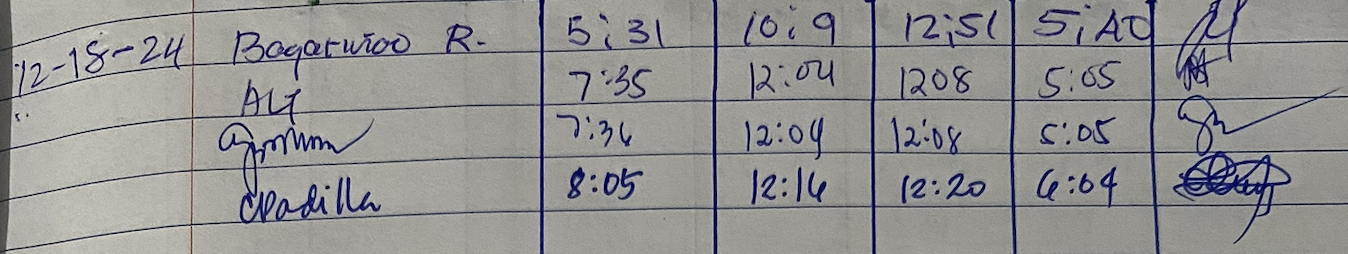 12-18-24 Bagarwioo R. 5:31 10:9 12:51 5:AO
ALT 7:35 12:04 1208 5:05
7:36 12:04 12:08 5:05
cpadilla 8:05 12:16 12:20 6:04